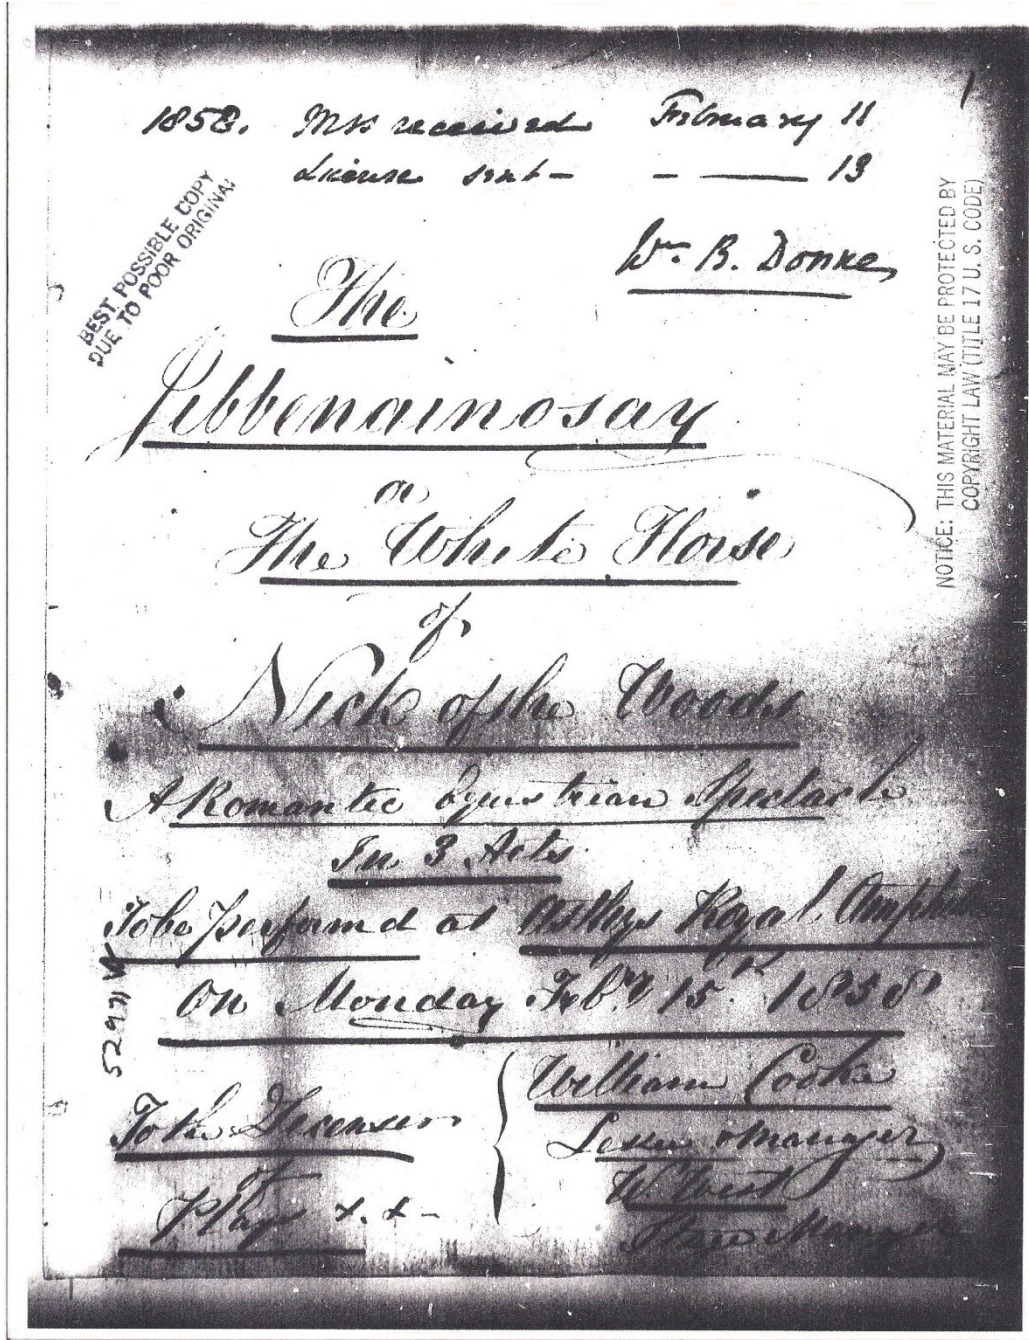 1
1858. MSS received February 11
License sent - - —— 13
Wm. B. Donne
BEST POSSIBLE COPY
DUE TO POOR ORIGINAL
NOTICE: THIS MATERIAL MAY BE PROTECTED BY
COPYRIGHT LAW (TITLE 17 U. S. CODE)
The
Jibbenainosay
or
The White Horse
of
Nick of the Woods
A Romantic Equestrian Spectacle
In 3 Acts
To be Perform d at Astleys Royal Amphi
On Monday Feby 15th 1858
52971 W
To the Licenser
of
Plays &. &-
William Cooke
Lessee & Manager
W. West
Stage Manager